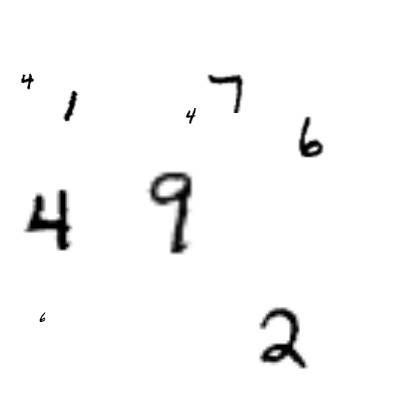 4 1 4 7 6
4 9
6 2